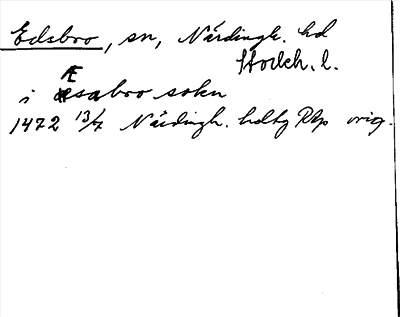 Edsbro, sn, Närdingh. hd
Stockh. l.
i Æsabro sokn
1472 13/7 Närdingh. hdtg RAp orig.